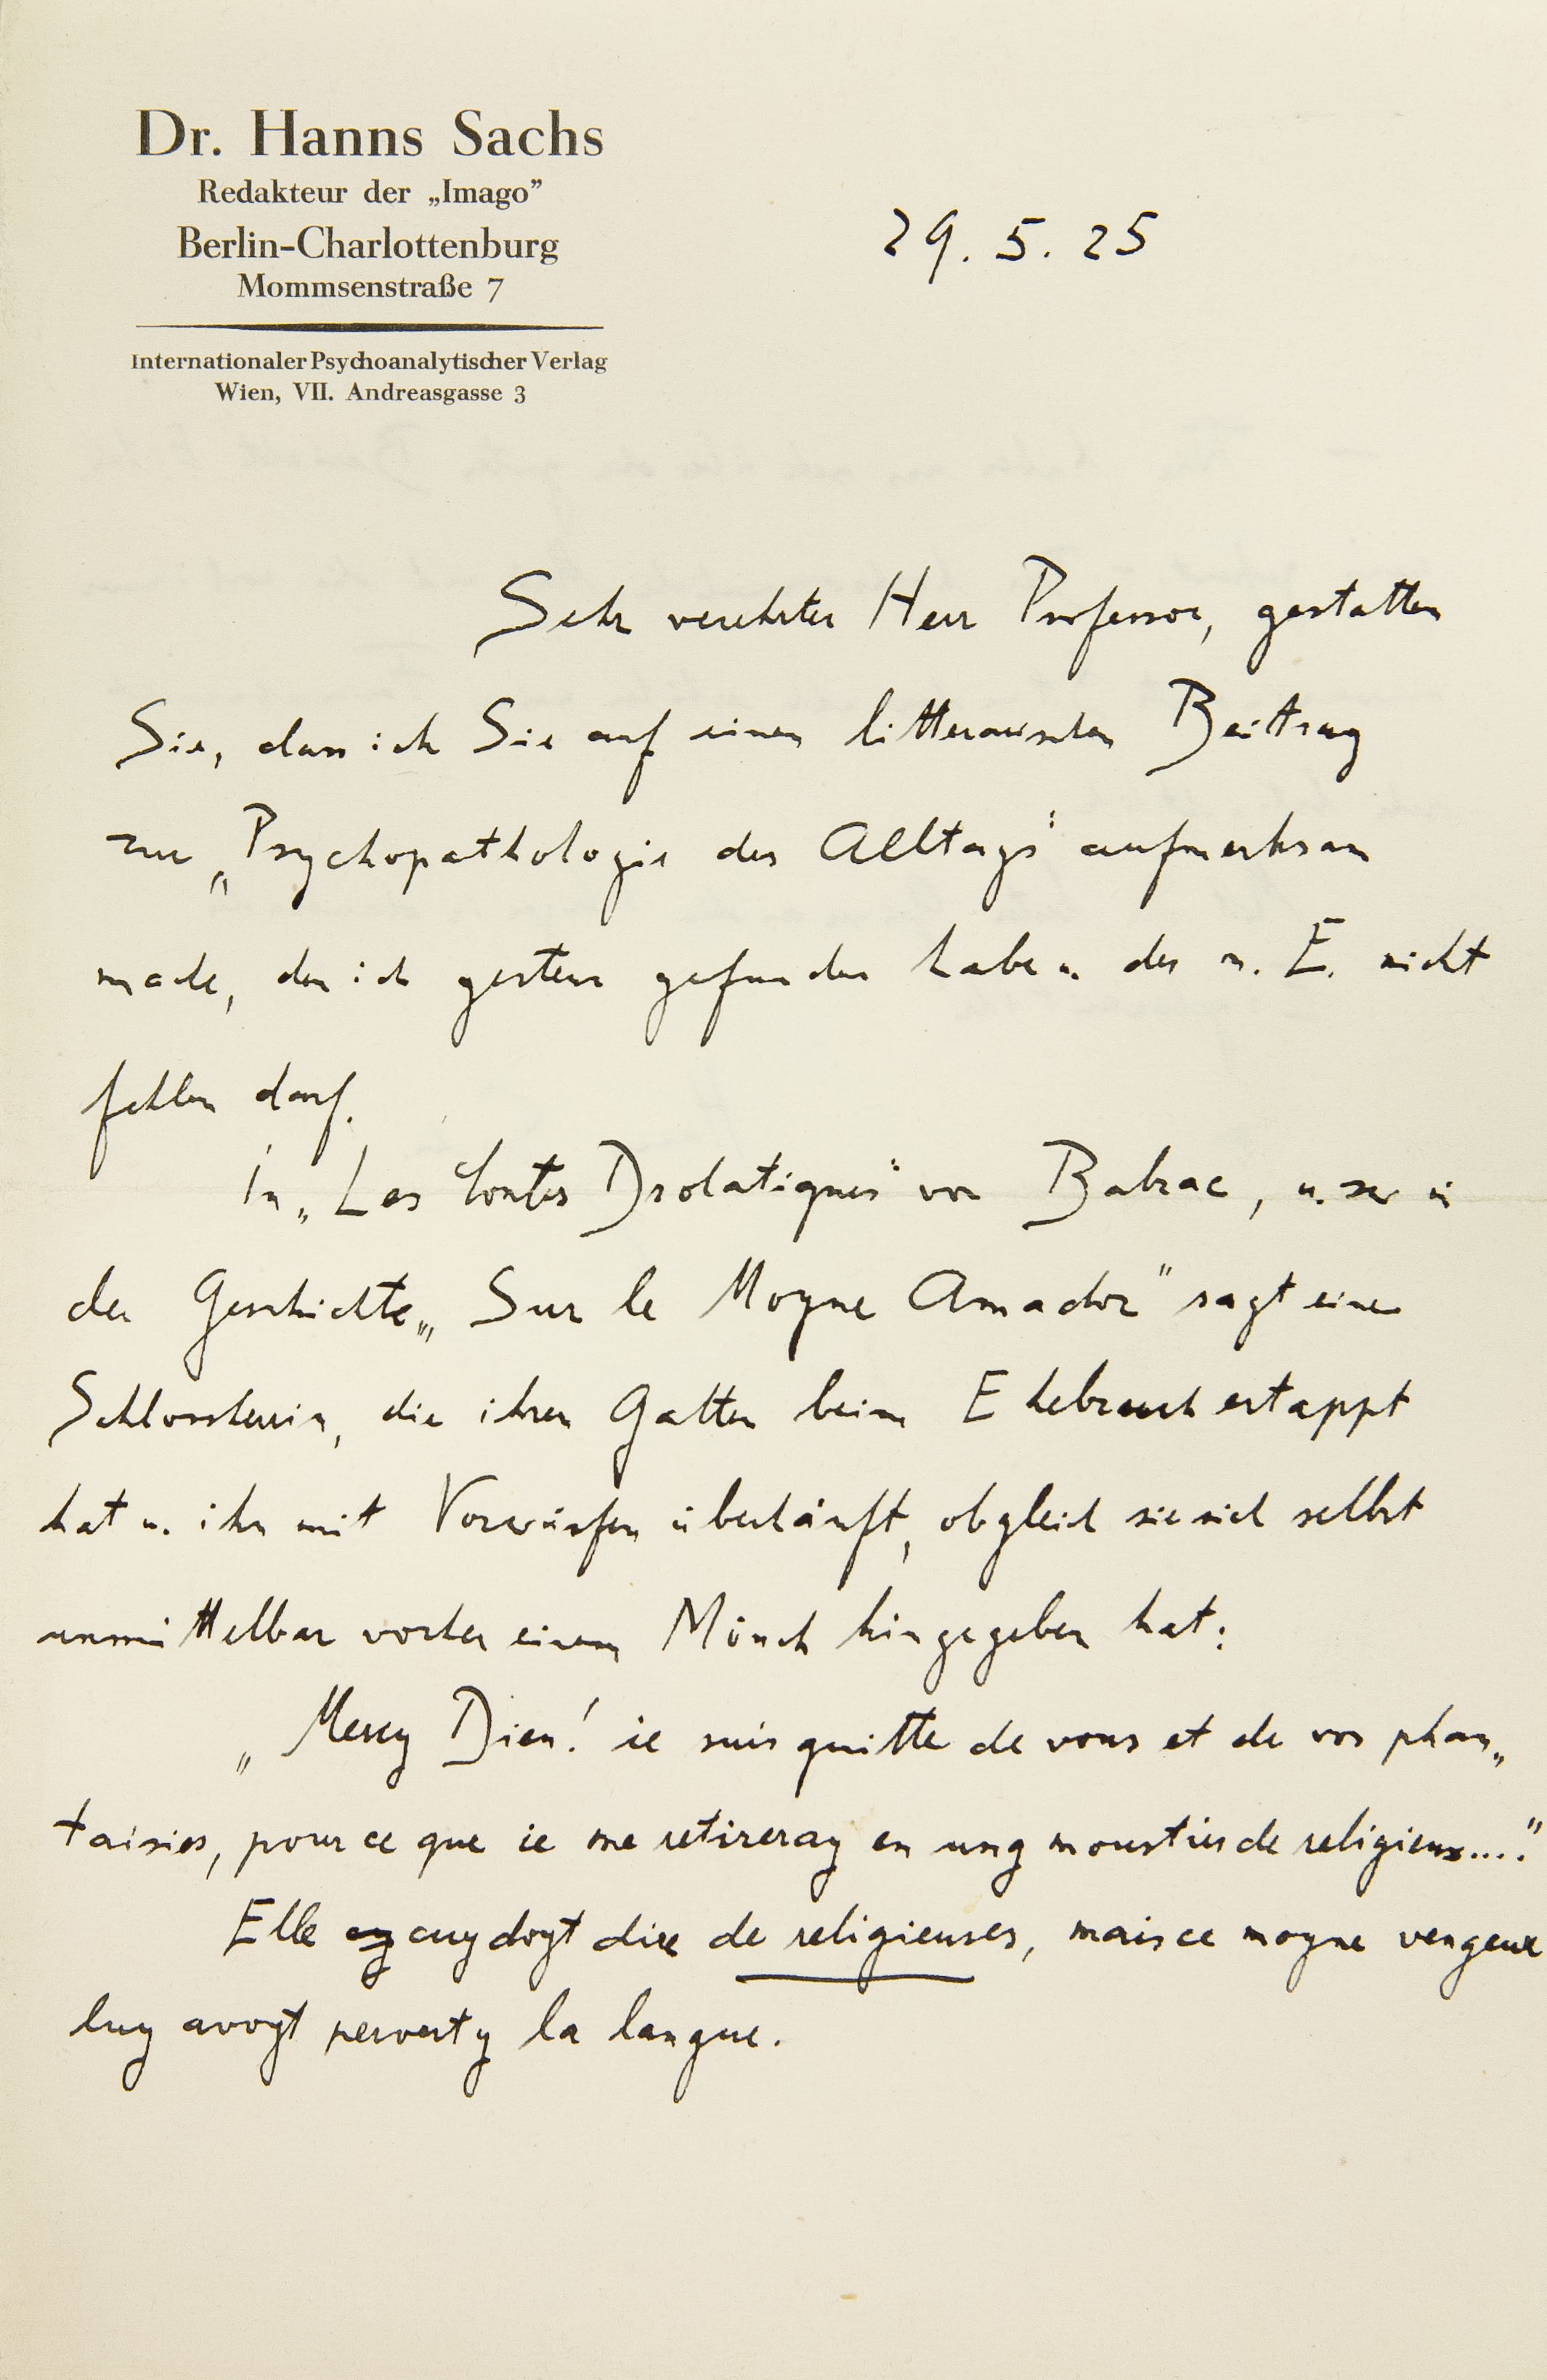 Dr. Hanns Sachs
Redakteur der „Imago”
Berlin-Charlottenburg
Mommsenstraße 7
Internationaler Psychoanalytischer Verlag
Wien, VII. Andreasgasse 3
29. 5. 25
Sehr verehrter Herr Professor, gestatten
Sie, dass ich Sie auf einen litterarischen Beitrag
zur „Psychopathologie des Alltags“ aufmerksam
mache, den ich gestern gefunden habe u. der m. E. nicht
fehlen darf.
In „Les Contes Drolatiques“ von Balzac, u. zw in
der Geschichte „Sur le Moyne Amador“ sagt eine
Schlossherrin, die ihren Gatten beim Ehebruch ertappt
hat u. ihn mit Vorwürfen überhäuft, obgleich sie sich selbst
unmittelbar vorher einem Mönch hingegeben hat:
„Mercy Dieu! ie suis quitte de vous et de vos phan„
taisies, pour ce que ie me retireray en ung moustier de religieux....“
Elle cuydoyt dire de religieuses, mais ce moyne vengeur
luy avoyt perverty la langue.